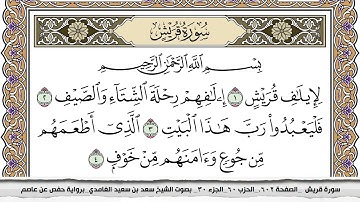 سُورَةُ قُرَيْشٍ
بِسْمِ اللَّهِ الرَّحْمَٰنِ الرَّحِيمِ
لِإِيلَٰفِ قُرَيْشٍ ١ إِۦلَٰفِهِمْ رِحْلَةَ الشِّتَآءِ وَالصَّيْفِ ٢
فَلْيَعْبُدُوا۟ رَبَّ هَٰذَا الْبَيْتِ ٣ الَّذِىٓ أَطْعَمَهُم
مِّن جُوعٍ وَءَامَنَهُم مِّنْ خَوْفٍۭ ٤
سورة قريش _ الصفحة ٦٠٢ _ الحزب ٦٠ _ الجزء ٣٠ _ بصوت الشيخ سعد بن سعيد الغامدي _ برواية حفص عن عاصم